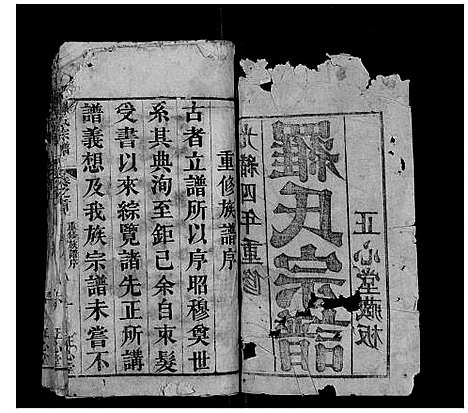 光緒四年重修
羅氏宗譜
正心堂藏板
重修族譜序
古者立譜所以序昭穆奠世
系其典洵至鉅已余自束髮
受書以來綜覽諸先正所講
譜義想及我族宗譜未嘗不
氏宗譜
卷之首
重修族譜序
正心堂